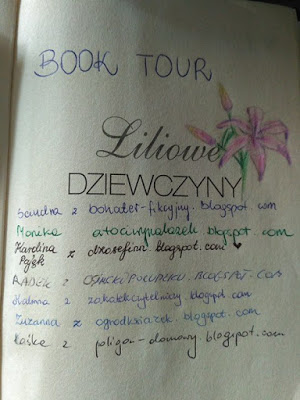 BOOK TOUR
Liliowe
DZIEWCZYNY
Sandra z bohater-fikcyjny.blogspot.com
Monika atociwynalazek.blogspot.com
Karolina
Pająk z dxosefinn.blogspot.com ♥
RADEK z
Halina z zakatekczytelniczy.blogspot.com
Zuzanna z ogrodksiazek.blogspot.com
Kaśka z poligon-domowy.blogspot.com